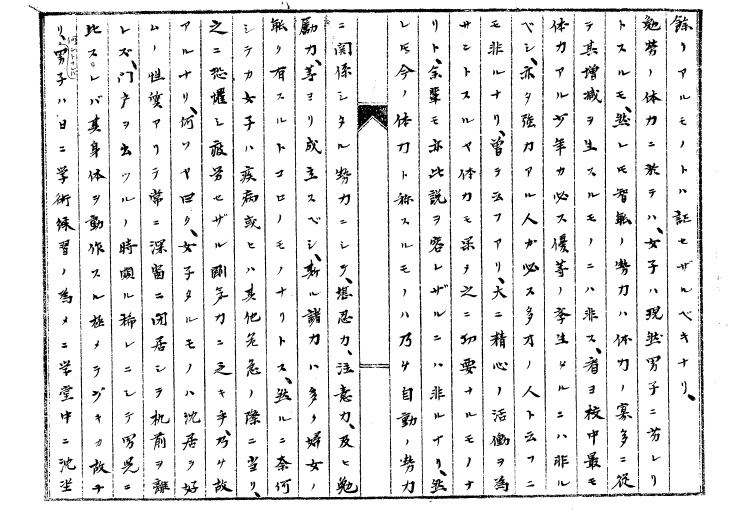 餘リアルモノトハ証セザルベキナリ、
勉労ノ体力ニ於テハ、女子ハ現然男子ニ劣レリ
トスルモ、然レ𪜈智転ノ勢力ハ体力ノ寡多ニ従
テ其増减ヲ生スルモノニハ非ス、看ヨ校中最モ
体力アル少年カ必ス優等ノ学生タルニハ非ル
ベシ、亦タ強力アル人カ必ス多才ノ人ト云フニ
モ非ルナリ、曽テ云フアリ、大ニ精心ノ活働ヲ為
サントスルヤ体力モ亦タ之ニ切要ナルモノナ
リト、余輩モ亦此説ヲ容レザルニハ非ルナリ、然
レ𪜈今ノ体力ト称スルモノハ乃チ自動ノ勢力
ニ関係シタル勢力ニシテ、堪忍力、注意力、及ヒ勉
励力、等ヨリ成立スベシ、斯ル諸力ハ多ク婦女ノ
能ク有スルトコロノモノナリトス、然ルニ奈何
シテカ女子ハ疾病或ヒハ其他危急ノ際ニ当リ、
之ニ恐懼シ疲労セザル剛気力ニ乏キ乎、乃チ故
アルナリ、何ソヤ曰ク、女子タルモノハ沈居ヲ好
ムノ性質アリテ常ニ深窗ニ閑居シテ机前ヲ離
レズ、門戸ヲ出ツルノ時間ル稀レニシテ男児ニ
比スレバ其身体ヲ動作スル極メテ少ナキカ故ナ
リ、男子ハ日ニ学術練習ノ為メニ学堂中ニ沈坐